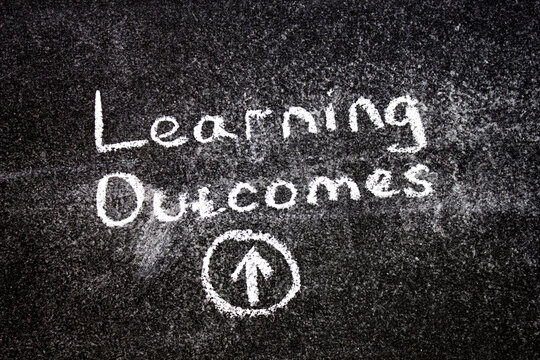 Learning
Outcomes